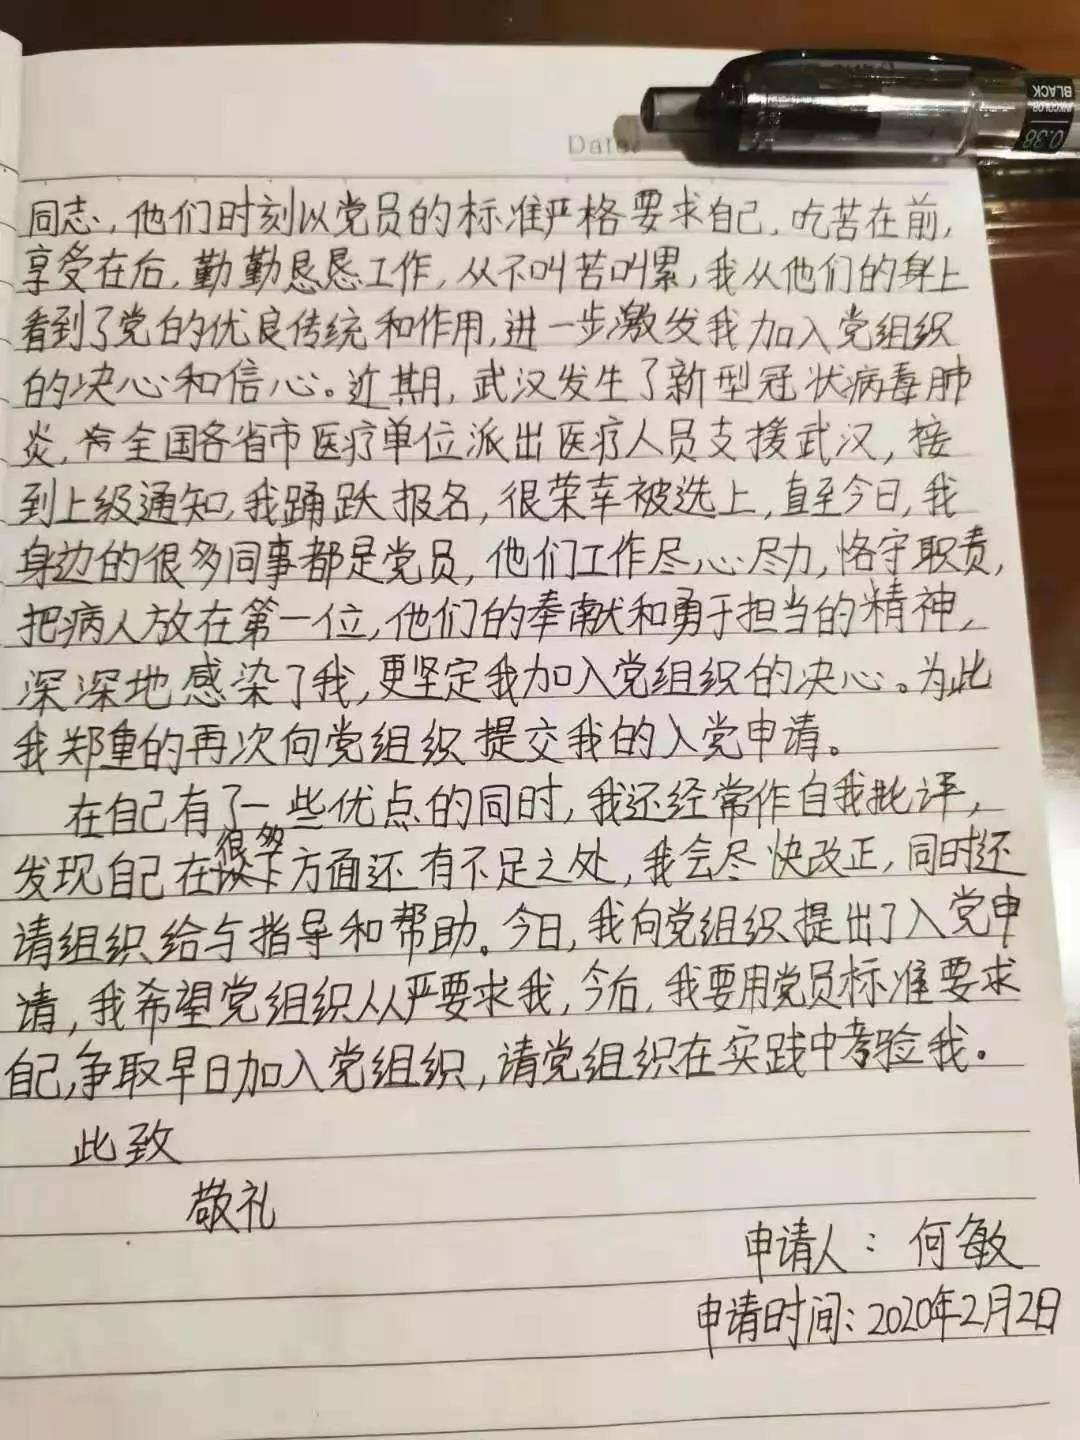 Date:
BLACK
0.38
同志,他们时刻以党员的标准严格要求自己,吃苦在前,
享受在后,勤勤恳恳工作,从不叫苦叫累,我从他们的身上
看到了党的优良传统和作用,进一步激发我加入党组织
的决心和信心。近期,武汉发生了新型冠状病毒肺
炎,全国各省市医疗单位派出医疗人员支援武汉,接
到上级通知,我踊跃报名,很荣幸被选上,直至今日,我
身边的很多同事都是党员,他们工作尽心尽力,恪守职责,
把病人放在第一位,他们的奉献和勇于担当的精神,
深深地感染了我,更坚定我加入党组织的决心。为此
我郑重的再次向党组织提交我的入党申请。
在自己有了一些优点的同时,我还经常作自我批评,
发现自己在很多方面还有不足之处,我会尽快改正,同时还
请组织给与指导和帮助。今日,我向党组织提出了入党申
请,我希望党组织从严要求我,今后,我要用党员标准要求
自己,争取早日加入党组织,请党组织在实践中考验我。
此致
敬礼
申请人:何敏
申请时间:2020年2月2日